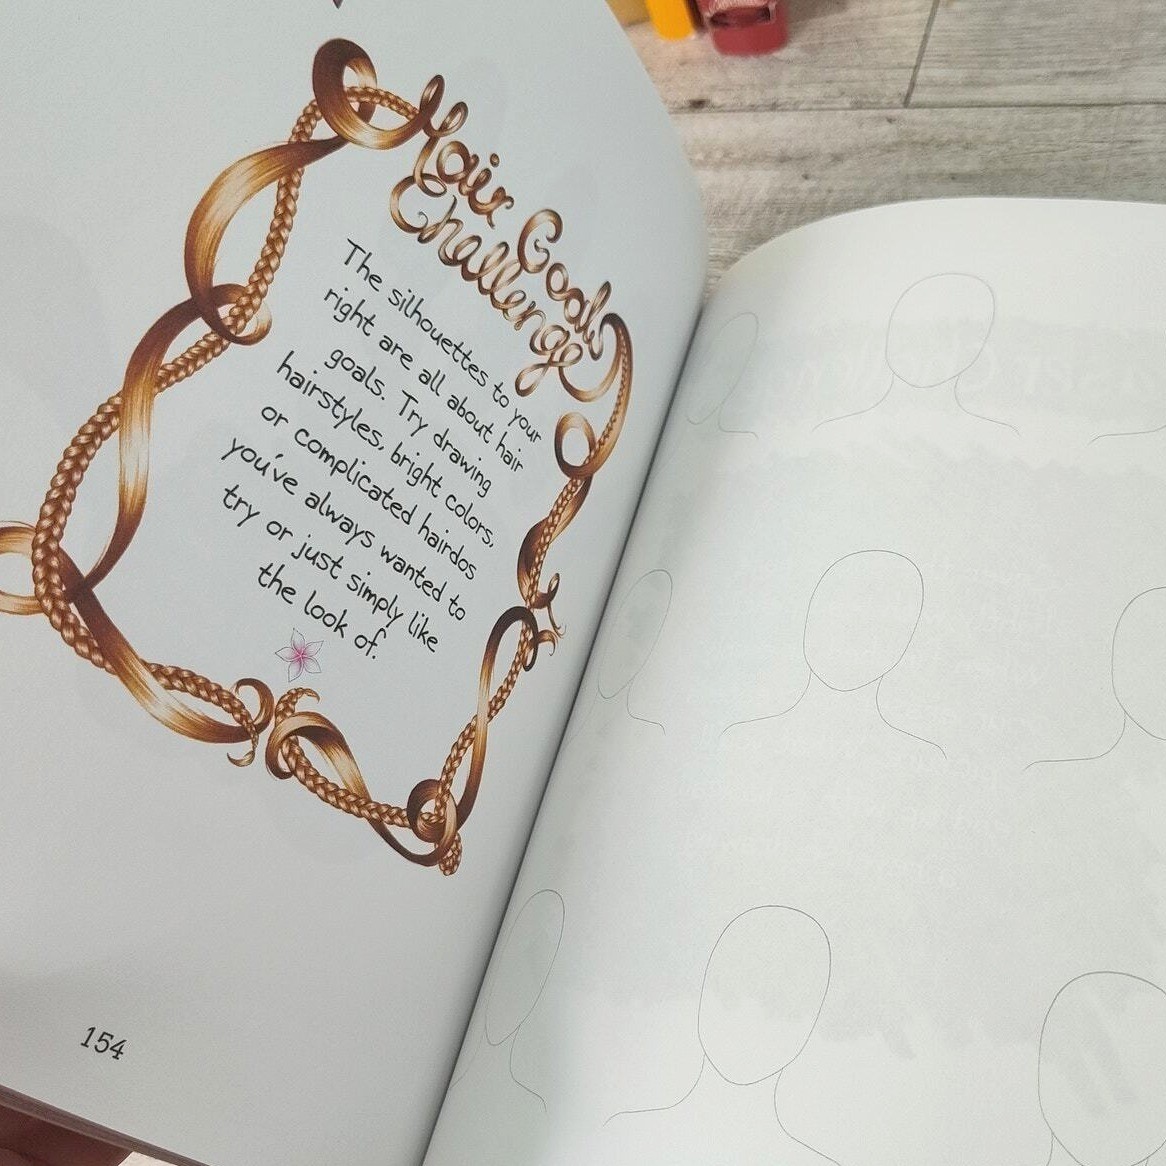 Hair Goals
Challenge
The silhouettes to your
right are all about hair
goals. Try drawing
hairstyles, bright colors,
or complicated hairdos
you've always wanted to
try or just simply like
the look of.
154